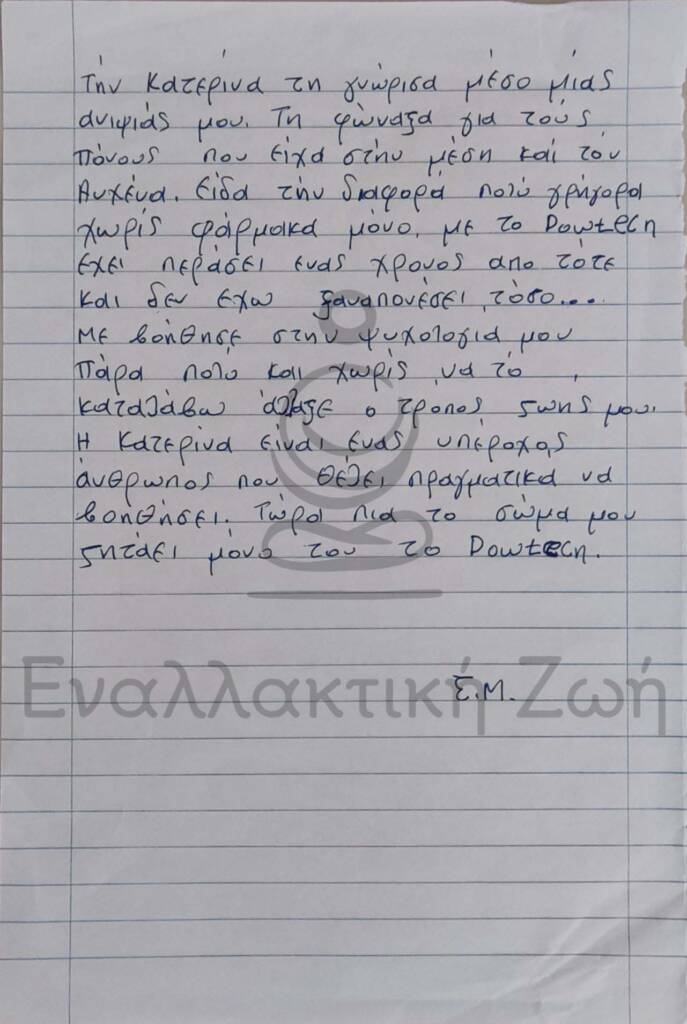 Την Κατερίνα τη γνώρισα μέσο μίας
ανιψιάς μου. Τη φώναξα για τούς
πόνους που είχα στήν μέση και τόν
Αυχένα. Είδα τήν διαφορά πολύ γρήγορα
χωρίς φάρμακα μόνο, με το Dowtech
έχει περάσει ενας χρονος απο τότε
και δεν εχω ξαναπονέσει τόσο....
Με βοήθησε στην ψυχολογία μου
πάρα πολύ και χωρίς να το
καταλάβω άλλαξε ο τροπος ζωης μου.
Η Κατερίνα είναι ενας υπέροχος
άνθρωπος που θέλει πραγματικά να
βοηθήσει. Τώρα πια το σώμα μου
ζητάει μόνο του το Dowtech.
Σ.Μ.
Εναλλακτική Ζωή